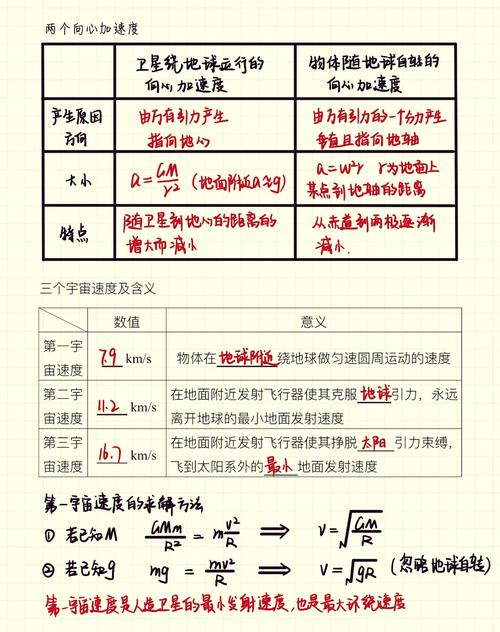 两个向心加速度
卫星绕地球运行的 物体随地球自转的
向心加速度 向心加速度
产生原因 由万有引力产生 由万有引力的一个分力产生
方向 指向地心 垂直且指向地轴
大小 a=GM/r² (地面附近a≈g) a=w²r r为地面上
某点到地轴的距离
特点 随卫星到地心的距离的 从赤道到两极逐渐
增大而减小 减小.
三个宇宙速度及含义
数值 意义
第一宇 7.9 km/s 物体在地球附近绕地球做匀速圆周运动的速度
宙速度
第二宇 11.2 km/s 在地面附近发射飞行器使其克服地球引力，永远
宙速度 离开地球的最小地面发射速度
第三宇 16.7 km/s 在地面附近发射飞行器使其挣脱太阳引力束缚，
宙速度 飞到太阳系外的最小地面发射速度
第一宇宙速度的求解方法
① 若已知M GMm/R² = m v²/R ⟹ v=√(GM/R)
② 若已知g mg = mv²/R ⟹ v=√gR (忽略地球自转)
第一宇宙速度是人造卫星的最小发射速度,也是最大环绕速度